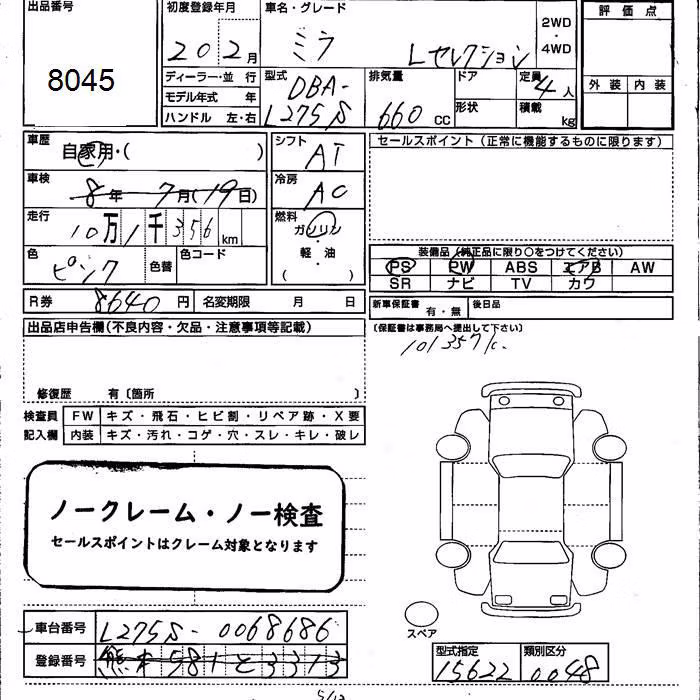 出品番号
8045
初度登録年月
20 2月
車名・グレード
ミラ Lセレクション
2WD
・
4WD
評価点
外装 内装
ディーラー・並 行
モデル年式 年
ハンドル 左・右
型式
DBA-
L275S
排気量
660 CC
ドア
形状
定員 4人
積載 kg
車歴
自家用・( )
車検
8年 7月(19日)
走行
10万1千356km
色
ピンク
色替
色コード
シフト
AT
冷房
AC
燃料
ガソリン
軽・油
( )
セールスポイント(正常に機能するものに限ります)
装備品(純正品に限り○をつけてください)
PS PW ABS エアB AW
SR ナビ TV カワ
R券 8640円
名変期限 月 日
新車保証書 有・無
後日品
(保証書は事務局へ提出して下さい)
出品店申告欄(不良内容・欠品・注意事項等記載)
修復歴 有〔箇所 〕
検査員
記入欄
FW キズ・飛石・ヒビ割・リペア跡・X要
内装 キズ・汚れ・コゲ・穴・スレ・キレ・破レ
ノークレーム・ノー検査
セールスポイントはクレーム対象となります
車台番号 L275S-0068686
登録番号 熊本581と3313
スペア
型式指定 15622
類別区分 0048